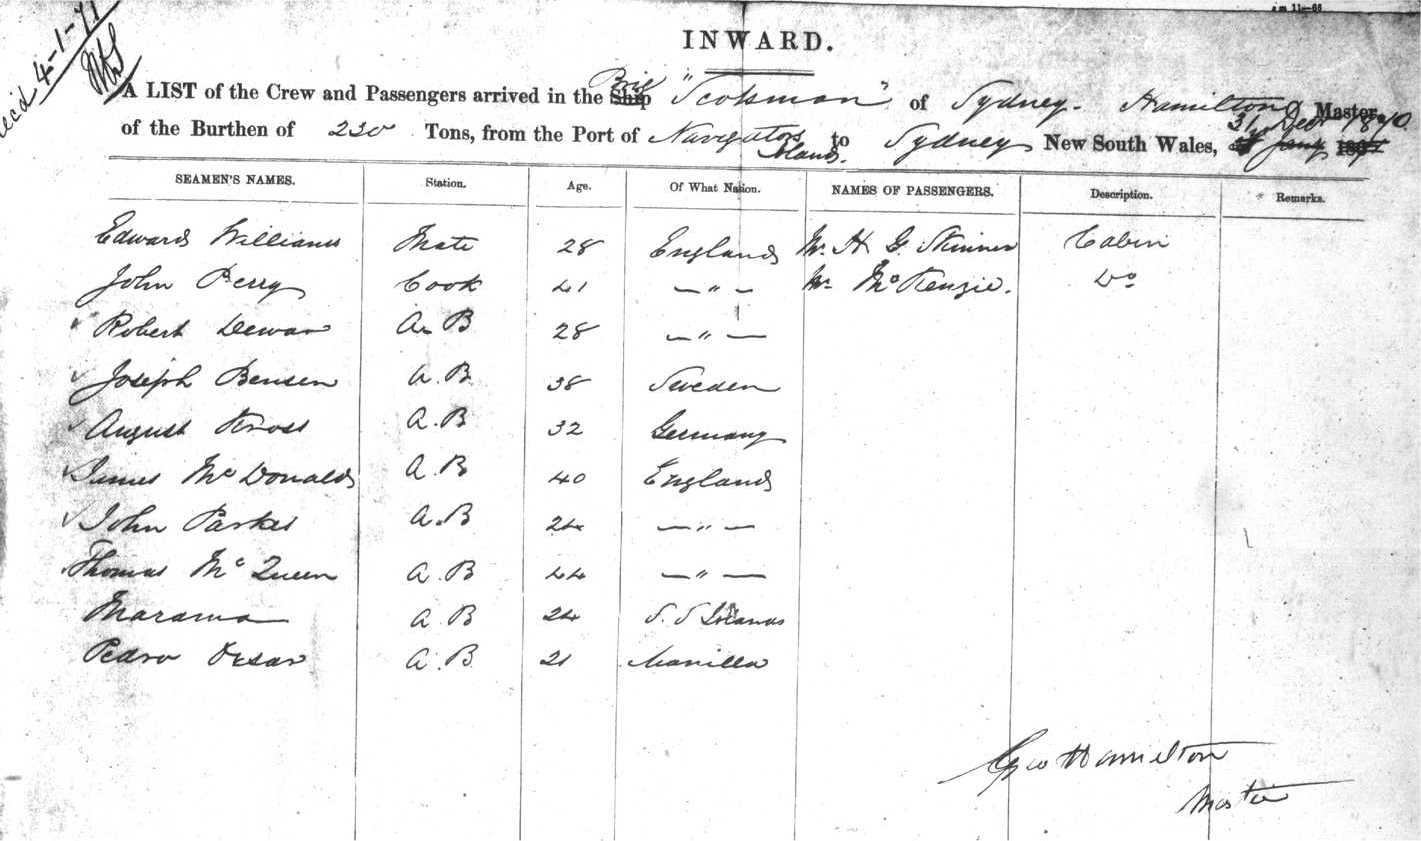 INWARD.
Recd 4-1-71
A LIST of the Crew and Passengers arrived in the Ship Brig "Scotsman" of Sydney. Hamilton Master,
of the Burthen of 230 Tons, from the Port of Navigators Islands. to Sydney New South Wales, 31st Decr 1870.
SEAMEN'S NAMES. Station. Age. Of What Nation. NAMES OF PASSENGERS. Description. Remarks.
Edward Williams Mate 28 England Mr. H G. Skinner Cabin
John Perry Cook 41 — " — Mr McKenzie. Do
Robert Dewar A. B 28 — " —
Joseph Bensen A. B. 38 Sweden
August Kross A. B 32 Germany
James McDonald A. B 40 England
John Parkes A. B 24 — " —
Thomas McQueen A. B 44 — " —
Marama A. B 24 S. S Islands
Pedro A. B. 21 Manilla
Geo Hamilton
Master